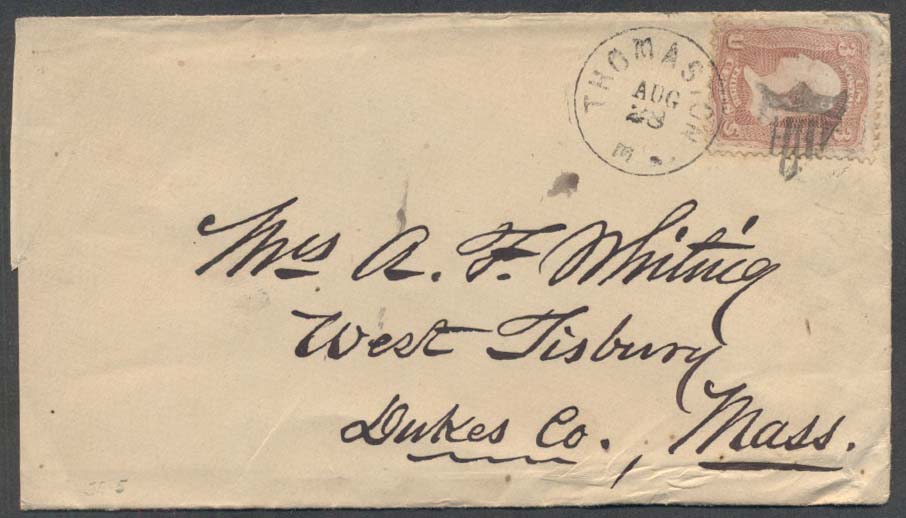 THOMASTON
AUG
28
U 3
U S 3
Mrs A. F. Whiting
West Tisbury
Dukes Co., Mass.